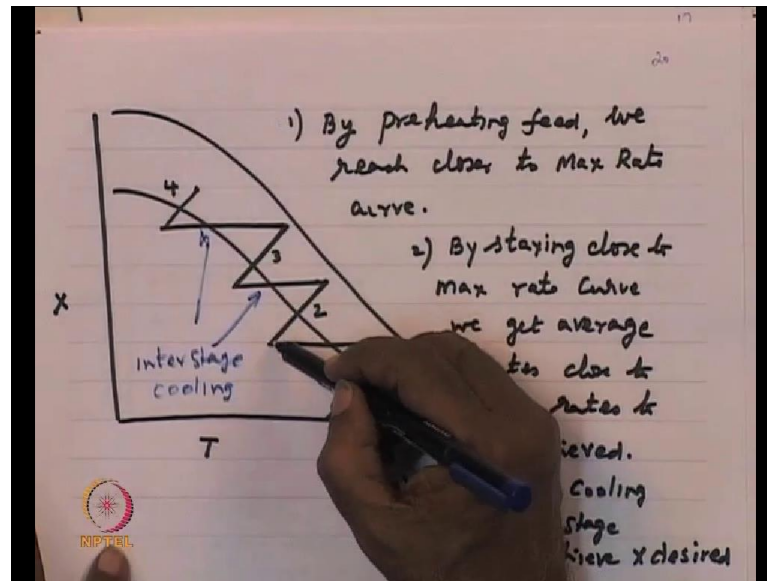 1) By preheating feed, we
reach closer to Max Rate
curve.
2) By staying close to
max rate curve
we get average
close to
rates to
cooling
stage
X desired
4
3
2
X
interstage
cooling
T
NPTEL